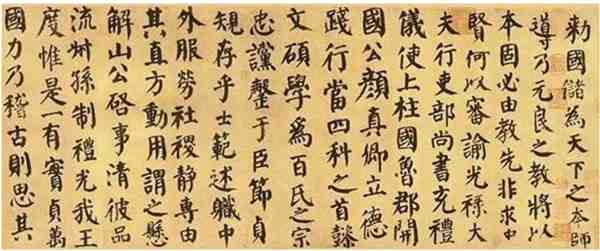 勑國儲為天下之本師
導乃元良之教將以
本固必由教先非求忠
賢何以審諭光祿大
夫行吏部尚書充禮
儀使上柱國魯郡開
國公顏真卿立德
踐行當四科之首懿
文碩學為百氏之宗
忠讜罄于臣節貞
規存乎士範述職中
外服勞社稷靜專由
其直方動用謂之懸
解山公啓事清彼品
流叔孫制禮光我王
度惟是一有實貞萬
國力乃稽古則思其